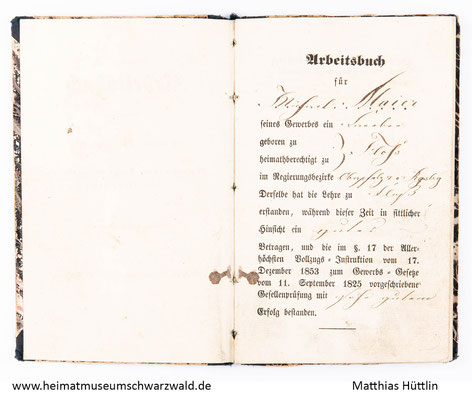 Arbeitsbuch
für
Michael Maier
seines Gewerbes ein
geboren zu
heimathberechtigt zu } Floß
im Regierungsbezirke Oberpfalz u. Regsbg
Derselbe hat die Lehre zu Floß
erstanden, während dieser Zeit in sittlicher
Hinsicht ein gutes
Betragen, und die im §. 17 der Aller-
höchsten Vollzugs-Instruktion vom 17.
Dezember 1853 zum Gewerbs-Gesetze
vom 11. September 1825 vorgeschriebene
Gesellenprüfung mit sehr gutem
Erfolg bestanden.
www.heimatmuseumschwarzwald.de
Matthias Hüttlin